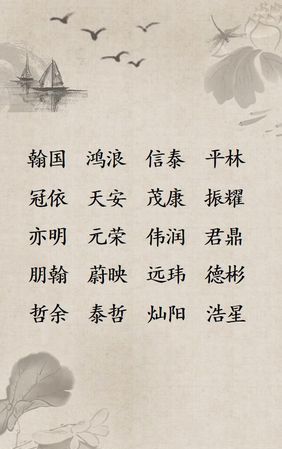 翰国 鸿浪 信泰 平林
冠依 天安 茂康 振耀
亦明 元荣 伟润 君鼎
朋翰 蔚映 远玮 德彬
哲余 泰哲 灿阳 浩星